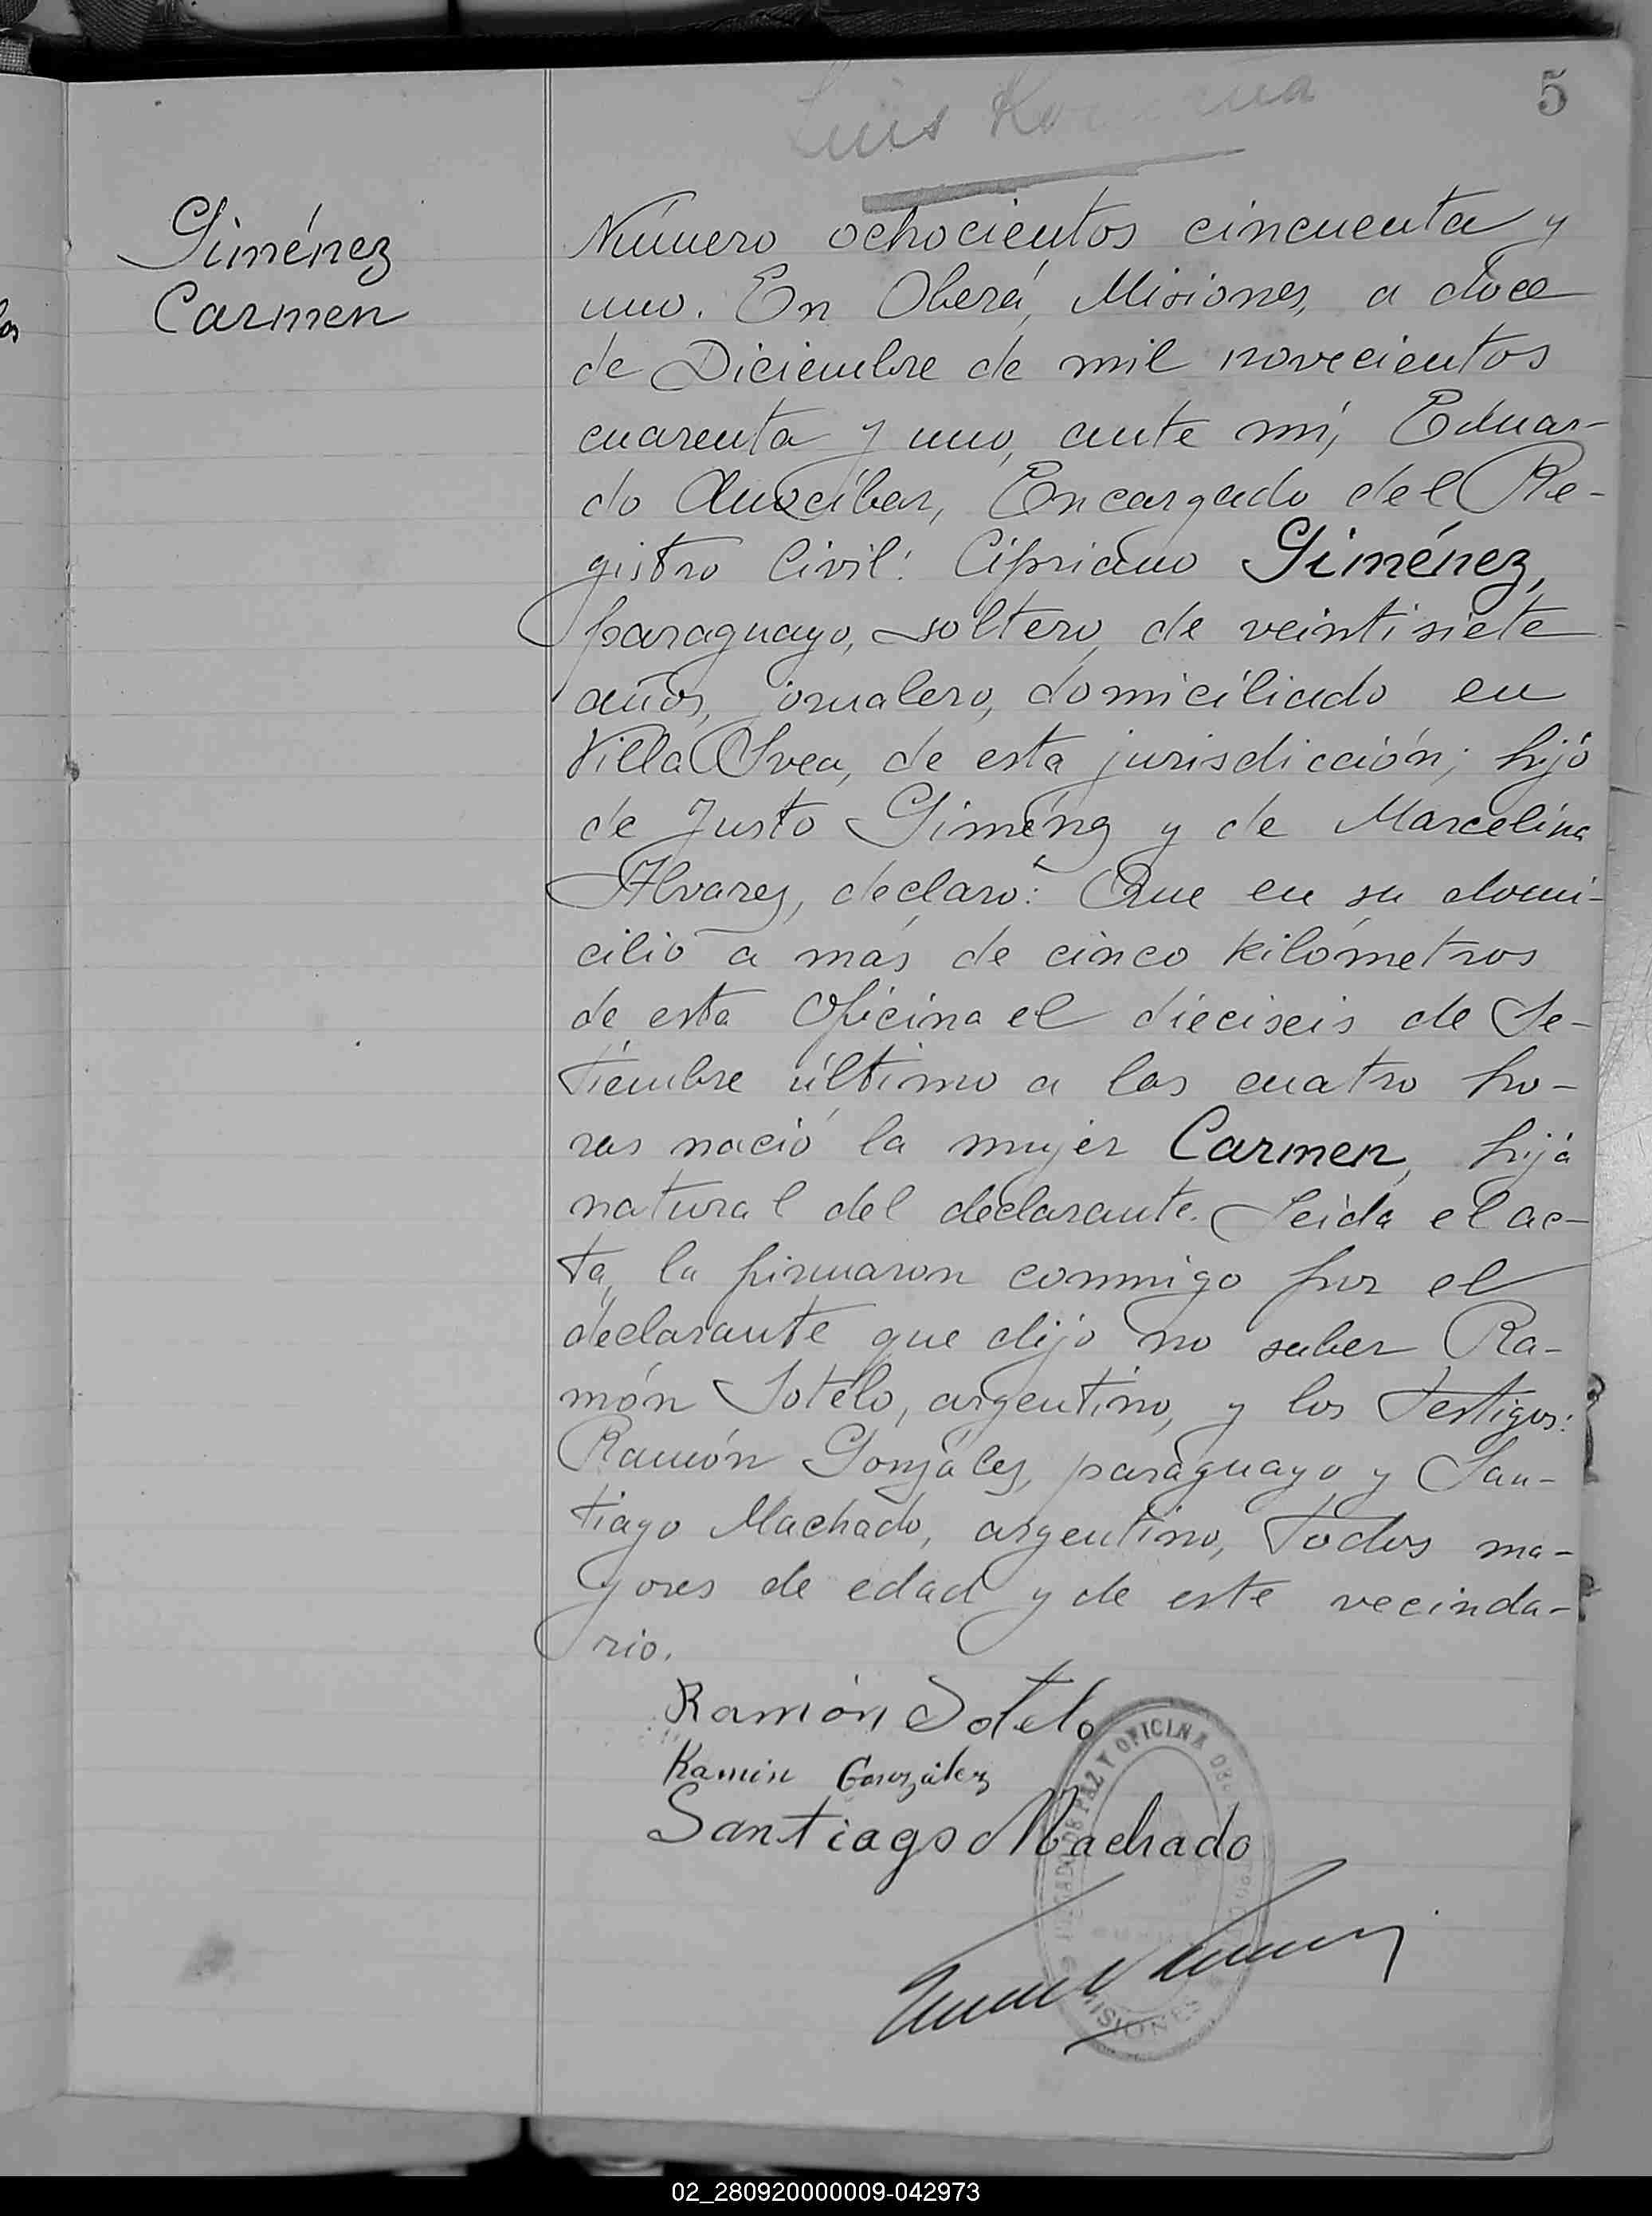 5
Luis
Giménez
Carmen
Número ochocientos cincuenta y
uno. En Oberá, Misiones, a doce
de Diciembre de mil novecientos
cuarenta y uno, ante mí, Eduar-
do Anocíbar, Encargado del Re-
gistro Civil: Cipriano Giménez,
paraguayo, soltero, de veintisiete
años, jornalero, domiciliado en
Villa Svea, de esta jurisdicción; hijo
de Justo Giménez y de Marcelina
Alvarez, declaró: Que en su domi-
cilio a más de cinco kilómetros
de esta Oficina el dieciseis de Se-
tiembre último a las cuatro ho-
ras nació la mujer Carmen, hija
natural del declarante. Leída el ac-
ta, la firmaron conmigo por el
declarante que dijo no saber Ra-
món Sotelo, argentino, y los testigos:
Ramón Gonzáles, paraguayo y San-
tiago Machado, argentino, todos ma-
yores de edad y de este vecinda-
rio.
Ramón Sotelo
Ramón González
Santiago Machado
DE PAZ Y OFICINA
MISIONES
02_280920000009-042973